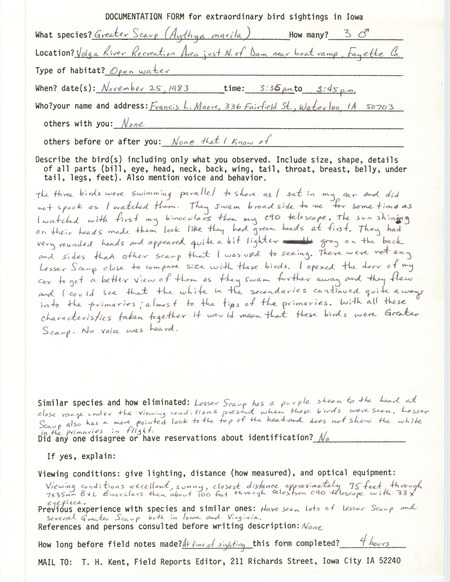 DOCUMENTATION FORM for extraordinary bird sightings in Iowa
What species? Greater Scaup (Aythya marila) How many? 3 ♂
Location? Volga River Recreation Area just N. of Dam near boat ramp, Fayette Co.
Type of habitat? Open water
When? date(s): November 25, 1983 time: 3:35pm to 3:45pm
Who? your name and address: Francis L. Moore, 336 Fairfield St., Waterloo, IA 50703
others with you: None
others before or after you: None that I know of
Describe the bird(s) including only what you observed. Include size, shape, details
of all parts (bill, eye, head, neck, back, wing, tail, throat, breast, belly, under
tail, legs, feet). Also mention voice and behavior.
The three birds were swimming parallel to shore as I sat in my car and did
not spook as I watched them. They swam broadside to me for some time as
I watched with first my binoculars then my c90 telescope. The sun shining
on their heads made them look like they had green heads at first. They had
very rounded heads and appeared quite a bit lighter grey on the back
and sides than other scaup that I was used to seeing. There were not any
Lesser Scaup close to compare size with these birds. I opened the door of my
car to get a better view of them as they swam further away and they flew
and I could see that the white in the secondaries continued quite a ways
into the primaries; almost to the tips of the primaries. With all these
characteristics taken together it would mean that these birds were Greater
Scaup. No voice was heard.
Similar species and how eliminated: Lesser Scaup has a purple sheen to the head at
close range under the viewing conditions present when these birds were seen. Lesser
Scaup also has a more pointed look to the top of the head and does not show the white
in the primaries in flight.
Did any one disagree or have reservations about identification? No
If yes, explain:
Viewing conditions: give lighting, distance (how measured), and optical equipment:
Viewing conditions excellent, sunny, closest distance approximately 75 feet, through
7x35mm B+L Binoculars then about 100 feet through celestron c90 telescope with 33x
eyepiece.
Previous experience with species and similar ones: Have seen lots of Lesser Scaup and
several Greater Scaup both in Iowa and Virginia.
References and persons consulted before writing description: None
How long before field notes made? At time of sighting this form completed? 4 hours
MAIL TO: T. H. Kent, Field Reports Editor, 211 Richards Street, Iowa City IA 52240